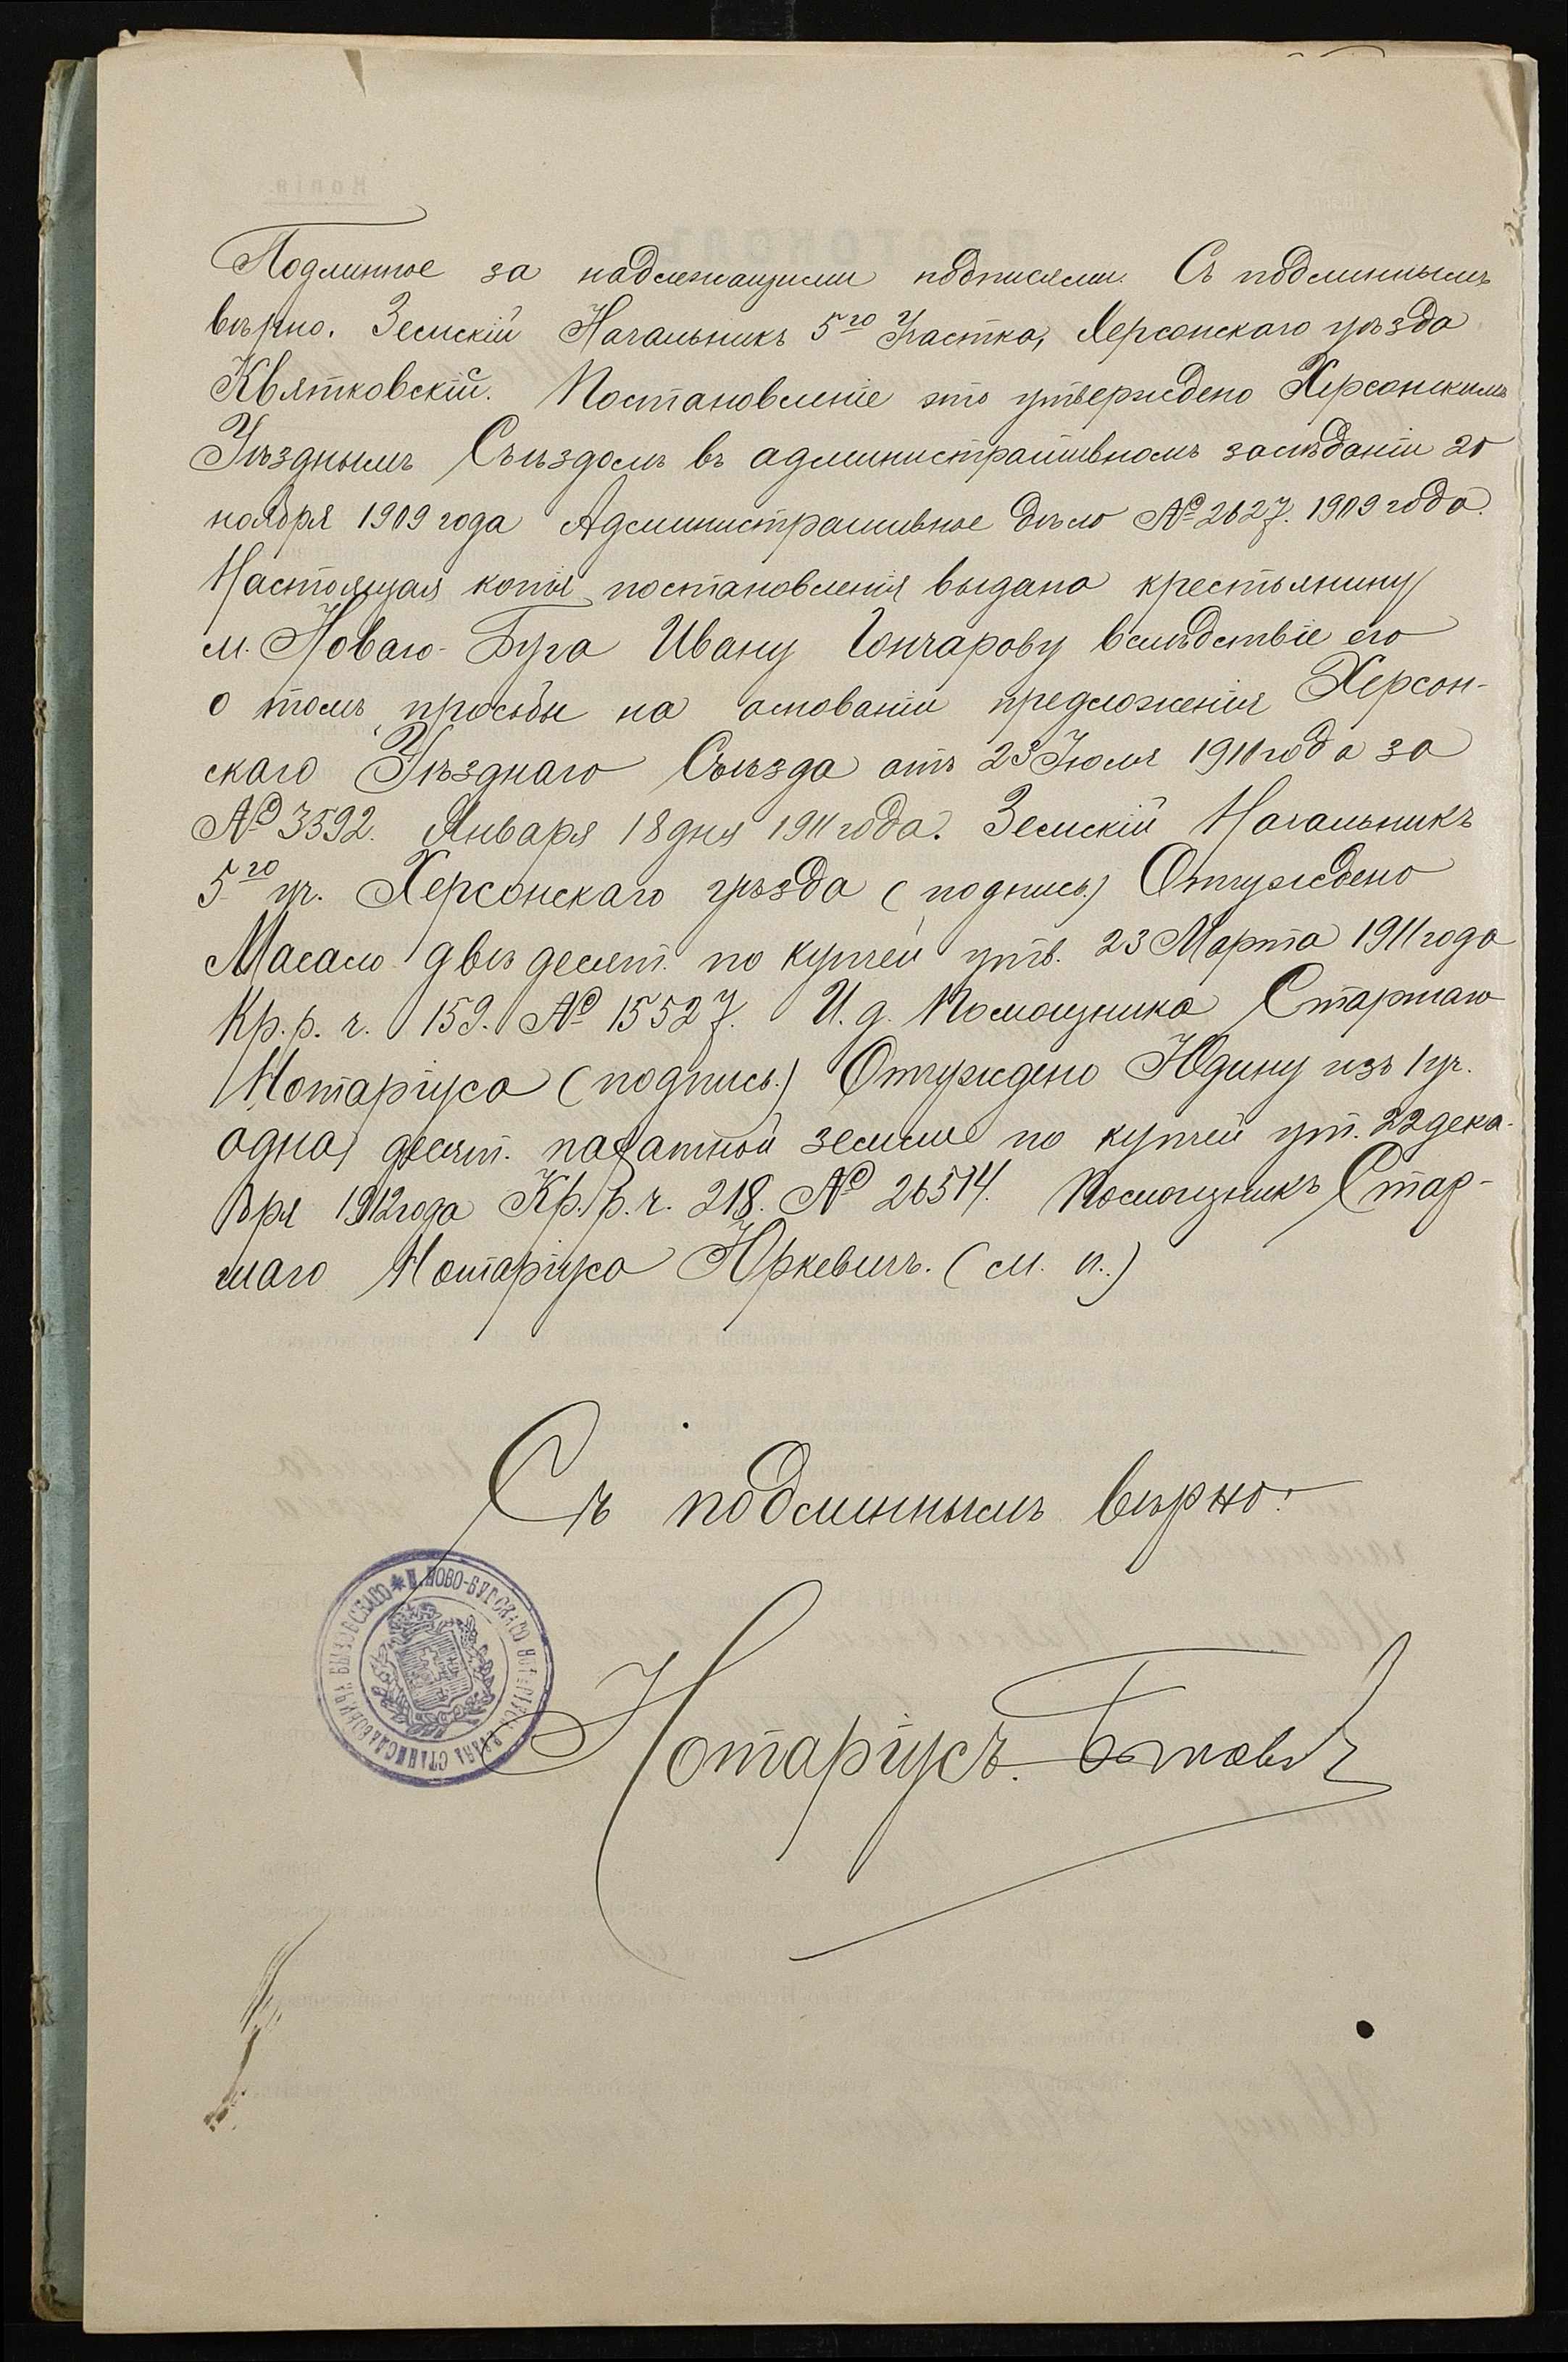 Подлинное за надлежащими подписями. Съ подлиннымъ
вѣрно. Земскій Начальникъ 5го Участка, Херсонскаго уѣзда
Квятковскій. Постановленіе это утверждено Херсонскимъ
Уѣзднымъ Съѣздомъ въ административномъ засѣданіи 20
ноября 1909 года Административное дѣло № 2627. 1909 года.
Настоящая копія постановленія выдана крестьянину
м. Новаго-Буга Ивану Гончарову вслѣдствіе его
о томъ просьбы на основаніи предложенія Херсон-
скаго Уѣзднаго Съѣзда отъ 23 Іюля 1911 года за
№ 3592. Января 18 дня 1911 года. Земскій Начальникъ
5го уч. Херсонскаго уѣзда (подпись) Отчуждено
двѣ десят. по купчей утв. 23 Марта 1911 года
Кр. р. ч. 159. № 15527. И. д. Помощника Старшаго
Нотаріуса (подпись.) Отчуждено Юдину изъ 1 уч.
одна десят. пахатной земли по купчей ут. 22 дека-
бря 1912 года Кр. р. ч. 218. № 26514. Помощникъ Стар-
шаго Нотаріуса Юркевичъ. (м. п.)
Съ подлиннымъ вѣрно:
Нотаріусъ.
Н. НОВО-БУГСКАГО НОТАРІУСА СТАНИСЛАВОВИЧА